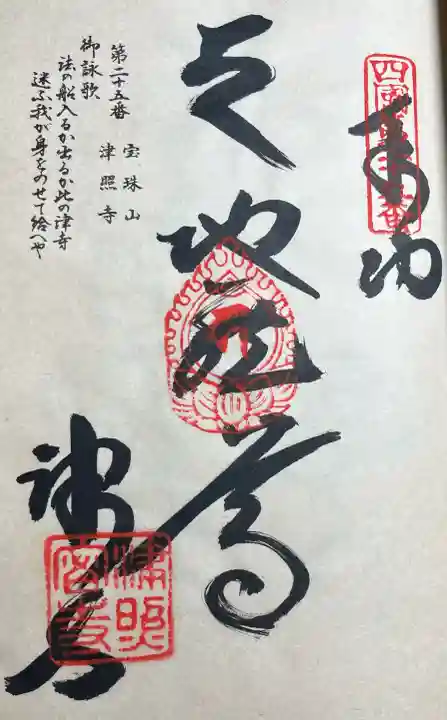 四國第二十五番
奉納
地蔵尊
津寺
津照密寺
第二十五番 宝珠山
津照寺
御詠歌
法の船入るか出るか此の津寺
迷ふ我が身をのせて給へや